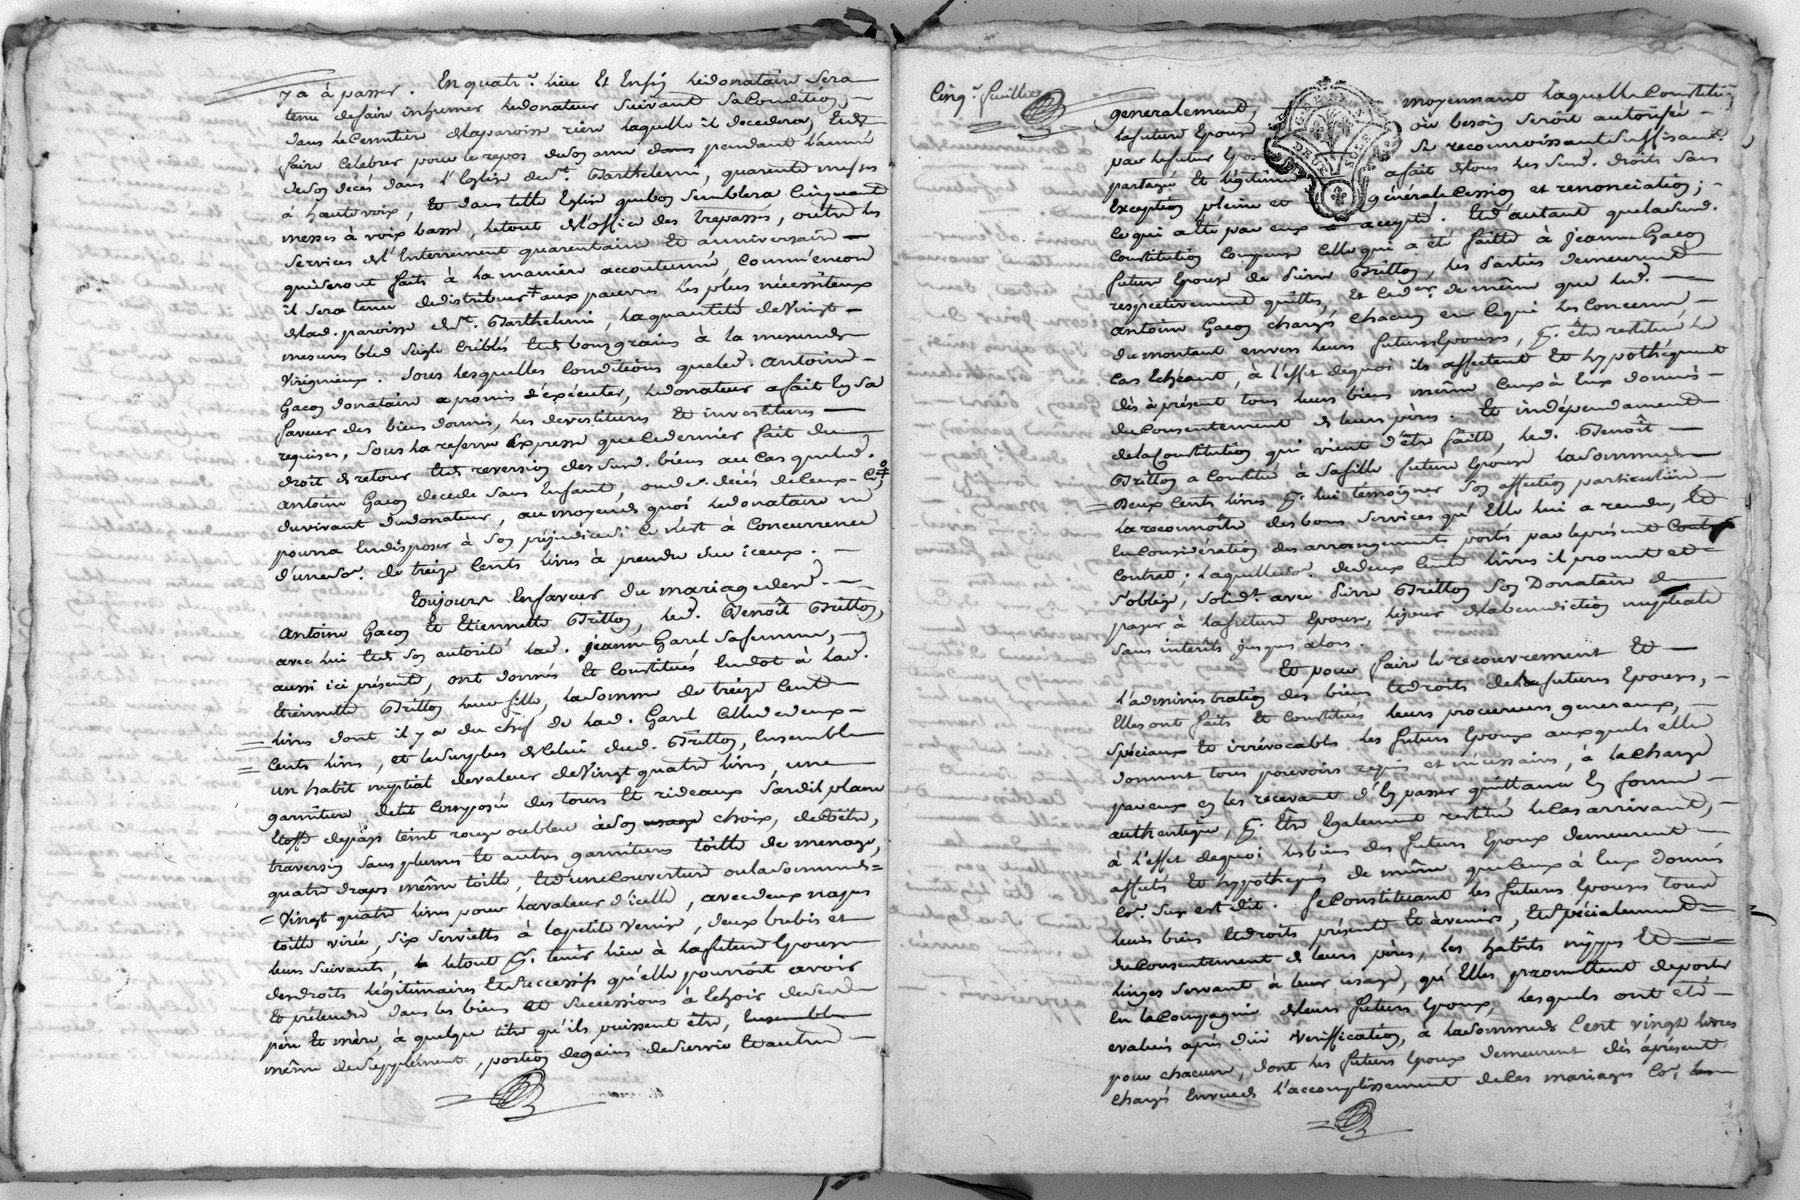 y a à passer. En quatr.e lieu Et Enfin le donataire sera
tenu de faire inhumer le donateur suivant sa condition,
dans le cemitiere de la paroisse rière laquelle il decedera, Et de
faire Celebrer pour le repos de son ame dans pendant l'année
de son décés dans l'Eglise de St. Barthelemi, quarente messes
à haute voix, Et dans telle Eglise que bon semblera Cinquante
messes à voix basse, le tout de l'office des trepassés, outre les
services de l'Enterrement quarentaine Et anniversaire
qui seront faits à la maniere accoutumée, comm'encore
il sera tenu de distribuer aux pauvres les plus nécessiteux
de lad. paroisse de St. Barthelemi, la quantité de Vingt
mesures bled seigle criblés Et de bons grains à la mesure de
Virignieux. Sous lesquelles Conditions que led. Antoine
Gacon donataire a promis d'éxécuter, le donateur a fait En sa
faveur des biens donnés, les devestitures Et investitures
requises, sous la reserve Expresse que ce dernier fait du
droit de retour Et de reversion des susd. biens au cas que led.
Antoine Gacon decede sans Enfants, ou de décés de ceux-Cy
du vivant du donateur, au moyen de quoi le donataire ne
pourra En disposer à son préjudice si Ce n'est à Concurrence
d'une so.e de treize Cents livres à prendre sur iceux.
Toujours En faveur du mariage desd.
Antoine Gacon Et Etiennette Britton, led. Benoît Britton,
avec lui Et de son autorité lad. Jeanne Garel sa femme,
aussi ici présente, ont donnés Et Constitués En dot à lad.
Etiennette Britton leur fille, la somme de treize Cents
livres dont il y a du chef de lad. Garel Celle de deux
Cents livres, et le surplus de Celui dud. Britton, Ensemble
un habit nuptial de valeur de Vingt quatre livres, une
garniture de lit Composée des tours Et rideaux
Etoffe de pays teint rouge ou bleu à son usage choix,
traversin sans plumes Et autres garnitures toille de menage,
quatre draps même toille, Et d'une Couverture ou la somme de
Vingt quatre livres pour la valeur d'icelle, avec deux napes
toille virée, six serviettes à la petite Venise, deux brebis et
leurs suivants, le tout p.r tenir lieu à la future Epouse
des droits légitimaires Et successifs qu'elle pourroit avoir
Et prétendre dans les biens Et successions à Echoir de sesd.
père Et mère, à quelque titre qu'ils puissent être, Ensemble
même de supplement, portion de gains de survie Et autres
Cinq.e feuillet
generalement, moyennant laquelle Constitution,
la future Epouse où besoin seroit autorisée
par le futur Epoux se reconnoissant suffisamt.
partagée Et légitimée a fait de tous les susd. droits sans
Exception pleine et générale Cession et renonciation;
Ce qui a été par eux accepté. Et d'autant que la susd.
Constitution Compense Celle qui a été faitte à Jeanne Gacon
future Epouse de Pierre Britton, les parties demeurent
respectivement quittes, Et ce dern.r de même que led.
Antoine Gacon chargés chacun en ce qui les concerne
du montant envers leurs futures Epouses, p.r être restitué le
Cas Echéant, à l'effet de quoi ils affectent Et hypothéquent
dès à présent tous leurs biens même Ceux à Eux donnés
du Consentement de leurs pères. Et indépendament
de la Constitution qui vient d'être faitte, led. Benoît
Britton a Constitué à sa fille future Epouse la somme de
Deux Cents livres p.r lui temoigner son affection particuliere
la reconnoître des bons services qu'Elle lui a rendu, Et
En Considération des arrangements portés par le présent
Contrat; laquelle so.e de deux Cents livres il promet et
s'oblige, solid.t avec Pierre Britton son Donataire de
payer à la future Epouse, le jour de la benediction nuptiale
sans interêts jusques alors.
Et pour faire le recouvrement Et
l'administration des biens Et droits de la futures Epouses,
Elles ont faits Et Constitués leurs procureurs generaux,
spéciaux Et irrévocables les futurs Epoux auxquels elles
donnent tous pouvoirs requis et nécessaires, à la charge
par eux en les recevant d'En passer quittance En forme
authentique, p.r Etre Egalement restitué le Cas arrivant,
à l'effet de quoi les biens des futurs Epoux demeurent
affectés Et hypothequés de même que Ceux à Eux donnés
Co.e sus est dit. Se Constituant les futures Epouses tous
leurs biens Et droits présents Et avenirs, Et spécialement
du Consentement de leurs pères, les habits nippes Et
linges servant à leur usage, qu'Elles promettent de porter
En la Compagnie de leurs futurs Epoux, lesquels ont été
evalués après due Verification, à la somme de Cent vingt livres
pour chacune, dont les futurs Epoux demeurent dès àprésent
chargés Envers l'accomplissement de Ces mariages